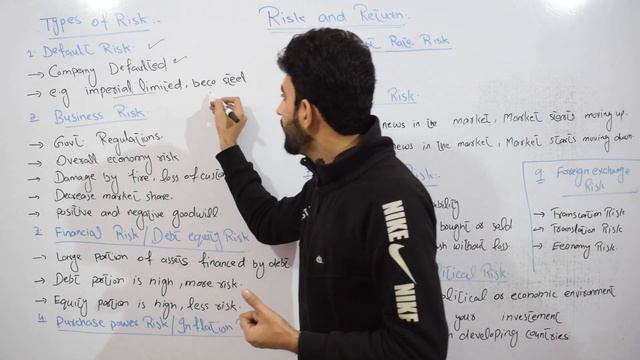 Types of Risk
1. Default Risk.
→ Company Defaulted
→ e.g imperial limited, beco steel
2. Business Risk
→ Govt Regulations.
→ Overall economy risk
→ Damage by fire, loss of
→ Decrease market share.
→ positive and negative goodwill.
3. Financial Risk / Debt equity Risk
→ Large portion of assets financed by debt
→ Debt portion is high, more risk.
→ Equity portion is high, less risk.
4 purchase power Risk / Inflation
Risk and Return.
Rate Risk
Risk.
news in the market, Market starts moving up.
news in the market, Market starts moving down
Risk.
bought or sold
without loss.
Risk.
political or economic environment
your investement
developing countries
9. Foreign exchange
Risk
→ Transaction Risk
→ Translation Risk
→ Economy Risk.
NIKE
NIKE